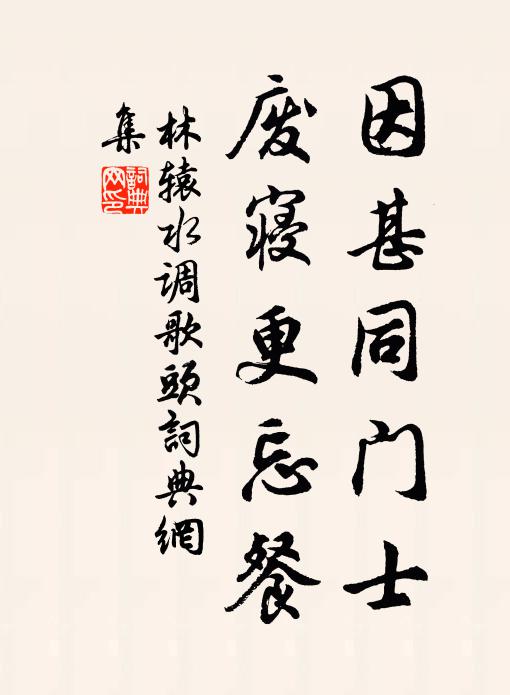 因甚同门士
废寝更忘餐
林辕水调歌头詞典網
集
詞典网印